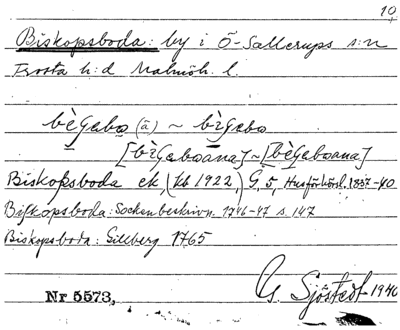 10
Biskopsboda: by i Ö-Sallerups s:n
Frosta h:d Malmöh. l.
bègebo (ā) ~ bìgebo
[bìgeboana] ~ [bègeboana]
Biskopsboda ek. (kb 1922) G, 5, Husförhörsl. 1837-40
Bifkopsboda: Sockenbeskrivn. 1746-47 s. 147
Biskopsbota: Gillberg 1765
Nr 5573, G. Sjöstedt 1946